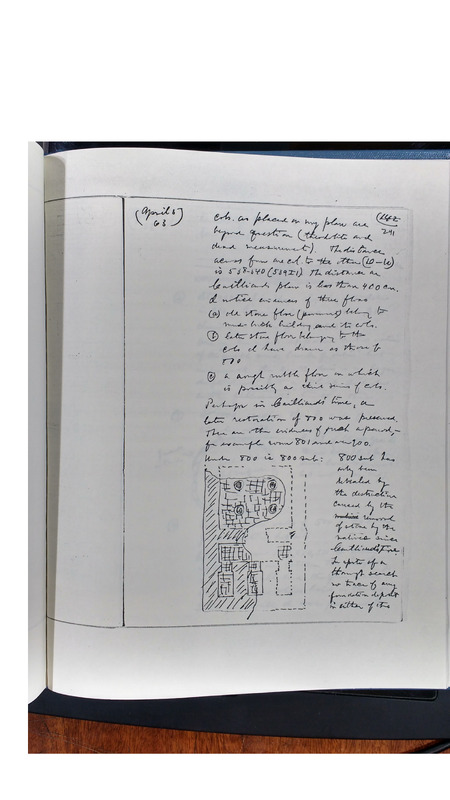 (April 5)
63
cols. as placed on my plan are
beyond question (theodolite and
dead measurements). The distance
across from one col. to the other
is 538-540 (539±1) The distance on
Cailliaud's plan is less than 400 cm.
I notice evidences of three floors
(a) old stone floor belong to
mud brick building and its cols.
(b) later stone floor belonging to the
cols I have drawn as those of
800
(c) a rough rubble floor on which
is possibly a third series of cols.
Perhaps in Cailliaud's time, a
later restoration of 800 was preserved.
There are other evidences of such a period,-
for example room 801 and 900.
Under 800 is 800 sub:
800 sub has
only been
revealed by
the destruction
caused by the
removal
of stone by the
natives since
Cailliaud's time
In spite of a
thorough search
no trace of any
foundation deposit
in either of the